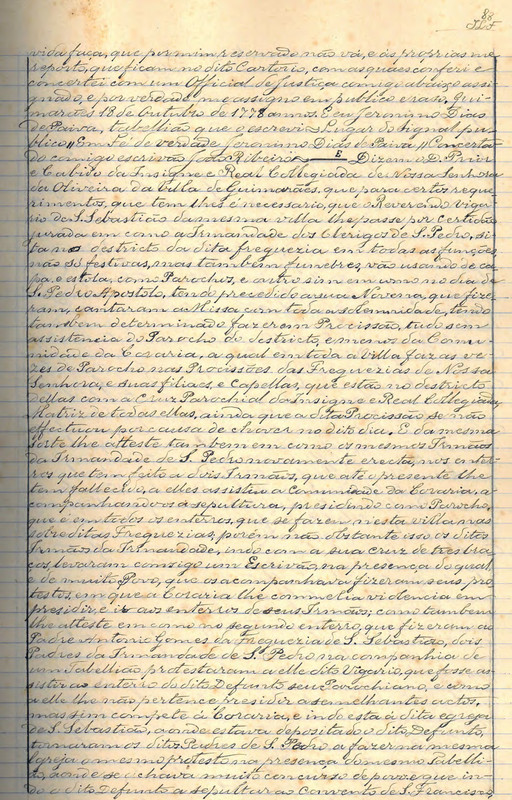 88
vida faça, que por mim reservado não vá, e ás proprias me
reporto, que ficam no dito Cartorio, com as quaes conferi e
concertei com um Official de Justiça comigo abaixo assi-
gnado, e por verdade me assigno em publico e raso. Gui-
marães 18 de Outubro de 1778 annos. E eu Jeronimo Dias
de Paiva, tabellião que o escrevi. Lugar do signal pu-
blico. Em fé de verdade Jeronimo Dias de Paiva. Concerta-
do comigo escrivão João Ribeiro. E Dizem o D. Prior
e Cabido da Insigne e Real Collegiada de Nossa Senhora
da Oliveira da Villa de Guimarães, que para certos reque-
rimentos, que tem lhes é necessario, que o Reverendo Viga-
rio de S. Sebastião da mesma villa lhe passe por certidão
jurada em como a Irmandade dos Clerigos de S. Pedro, si-
ta no destricto da dita freguezia em todas as funções
não só festivas, mas tambem funebres, vão usando de ca-
pa, e estola, como Parochos, e outro sim em como no dia de
S. Pedro Apostolo, tendo precedido a sua Novena, que fize-
ram, cantaram a Missa com toda a solemnidade, tendo
tambem determinado fazerem Procissão, tudo sem
assistencia do Parocho do destricto, e menos da Comu-
nidade da Coraria, a qual em toda a villa faz as ve-
zes de Parocho nas Procissões das Freguezias de Nossa
Senhora, e suas filiaes, e Capellas, que estão no destricto
dellas com a Cruz Parochial da Insigne e Real Collegiada,
Matriz de todas ellas, ainda que a dita Procissão se não
effectuou por causa de chover no dito dia. E da mesma
sorte lhe atteste tambem em como os mesmos Irmãos
da Irmandade de S. Pedro novamente erecta, nos enter-
ros que tem feito a dois Irmãos, que até o presente lhe
tem fallecido, a elles assistiu a Comunidade da Coraria, a-
companhando-os á sepultura, presidindo como Parocho,
que é em todos os enterros, que se fazem n'esta villa nas
sobreditas Freguezias, porém não obstante isso os ditos
Irmãos da Irmandade, indo com a sua cruz de tres bra-
ços, levaram comsigo um Escrivão, na presença do qual
e de muito Povo, que os acompanhava fizeram seus pro-
testos, em que a Coraria lhe commetia violencia em
presidir, e ir aos enterros de seus Irmãos; como tambem
lhe atteste em como no segundo enterro, que fizeram, ao
Padre Antonio Gomes da Freguezia de S. Sebastião, dois
Padres da Irmandade de S. Pedro na companhia de
um Tabellião protestaram a elle dito Vigario, que fosse as-
sistir ao enterro do dito Defunto seu Parochiano, e como
a elle lhe não pertence presidir a semelhantes actos,
mas sim compete á Coraria, e indo esta á dita egreja
de S. Sebastião, aonde estava depositado o dito Defunto,
tornaram os ditos Padres de S. Pedro a fazer na mesma
Igreja o mesmo protesto na presença do mesmo Tabelli-
ão, aonde se achava muito concurso de povo, e que in-
do o dito Defunto a sepultar ao Convento de S. Francisco,